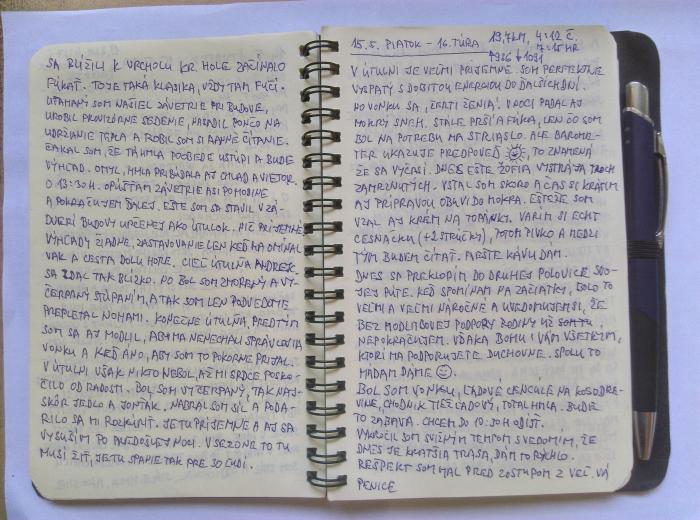 SA BLÍŽILI K VRCHOLU KR. HOLE ZAČÍNALO
FÚKAŤ. TO JE TAKÁ KLASIKA, VŽDY TAM FUČÍ.
UTAHANÝ SOM NAŠIEL ZÁVETRIE PRI BUDOVE,
UROBIL PROVIZÓRNE SEDENIE, NASADIL PONČO NA
UDRŽANIE TEPLA A ROBIL SOM SI RANNÉ ČÍTANIE.
ČAKAL SOM, ŽE TÁ HMLA POOBEDE USTÚPI A BUDE
VÝHĽAD. OMYL, HMLA PRIBÚDALA AJ CHLAD A VIETOR.
O 13:30 H. OPÚŠŤAM ZÁVETRIE ASI PO HODINE
A POKRAČUJEM ĎALEJ. EŠTE SOM SA STAVIL V ZÁ-
DVERÍ BUDOVY URČENEJ AKO ÚTULOK. NIČ PRÍJEMNÉ,
VÝHĽADY ŽIADNE, ZASTAVOVANIE LEN KEĎ MA OMÍŇAL
VAK A CESTA DOLU HORE. CIEĽ ÚTULŇA ANDREJC-
SA ZDAL TAK BLÍZKO. NO BOL SOM ZMORENÝ A VY-
ČERPANÝ STÚPANÍM, A TAK SOM LEN PODVEDOME
PREPLETAL NOHAMI. KONEČNE ÚTULŇA, PREDTÝM
SOM SA AJ MODLIL, ABY MA NENECHALI SPRÁVCOVIA
VONKU A KEĎ ÁNO, ABY SOM TO POKORNE PRIJAL.
V ÚTULNI VŠAK NIKTO NEBOL, AŽ MI SRDCE POSKO-
ČILO OD RADOSTI. BOL SOM VYČERPANÝ, TAK NAJ-
SKÔR JEDLO A JONŤÁK. NABRAL SOM SÍL A PODA-
RILO SA MI ROZKÚRIŤ. JE TU PRÍJEMNE A AJ SA
VYSUŠÍM PO PREDOŠLEJ NOCI. V SEZÓNE TO TU
MUSÍ ŽIŤ, JE TU SPANIE TAK PRE 30 ĽUDÍ.
15.5. PIATOK - 16. TÚRA 19,7KM, 4:12 Č.
7:15 HR
↑926 ↓1091
V ÚTULNI JE VEĽMI PRÍJEMNE. SOM PERFEKTNE
VYSPATÝ S DOSTATOU ENERGIOU DO ĎALŠÍCH DNÍ.
NO VONKU SA „ČERTI ŽENIA“. V NOCI PADAL AJ
MOKRÝ SNEH. STÁLE PRŠÍ A FÚKA, LEN ČO SOM
BOL NA POTREBU MA STRIASLO. ALE BAROME-
TER UKAZUJE PREDPOVEĎ ☀, TO ZNAMENÁ
ŽE SA VYČASÍ. DNES EŠTE ŽOFIA VYSTRÁJA TROCH
ZAMRZNUTÝCH. VSTAL SOM SKORO A ČAS SI KRÁTIM
AJ PRÍPRAVOU OBUVI DO MOKRA. EŠTEŽE SOM
VZAL AJ KRÉM NA TOPÁNKY. VARÍM SI ECHT
CESNAČKU (+2 STRÚČKY), POTOM PIVKO A MEDZI
TÝM BUDEM ČÍTAŤ. A EŠTE KÁVU DÁM.
DNES SA PREKLOPÍM DO DRUHEJ POLOVICE SVO-
JEJ PÚTE. KEĎ SPOMÍNAM NA ZAČIATKY, BOLO TO
VEĽMI A VEĽMI NÁROČNÉ A UVEDOMUJEM SI, ŽE
BEZ MODLITBOVEJ PODPORY RODINY UŽ SOM TU
NEPOKRAČUJEM. VĎAKA BOHU I VÁM VŠETKÝM,
KTORÍ MA PODPORUJETE DUCHOVNE. SPOLU TO
HÁDAM DÁME ☺.
BOL SOM VONKU, ĽADOVÉ CENCÚLE NA KOSODRE-
VINE, CHODNÍK TIEŽ ĽADOVÝ, TOTAL HMLA. BUDE
TO ZÁBAVA. CHCEM DO 10:30H ODÍSŤ.
VYKROČIL SOM SVIŽNÝM TEMPOM S VEDOMÍM, ŽE
DNES JE KRATŠIA TRASA, DÁM TO RÝCHLO.
REŠPEKT SOM MAL PRED ZOSTUPOM Z VEĽ. VÁ
PENICE